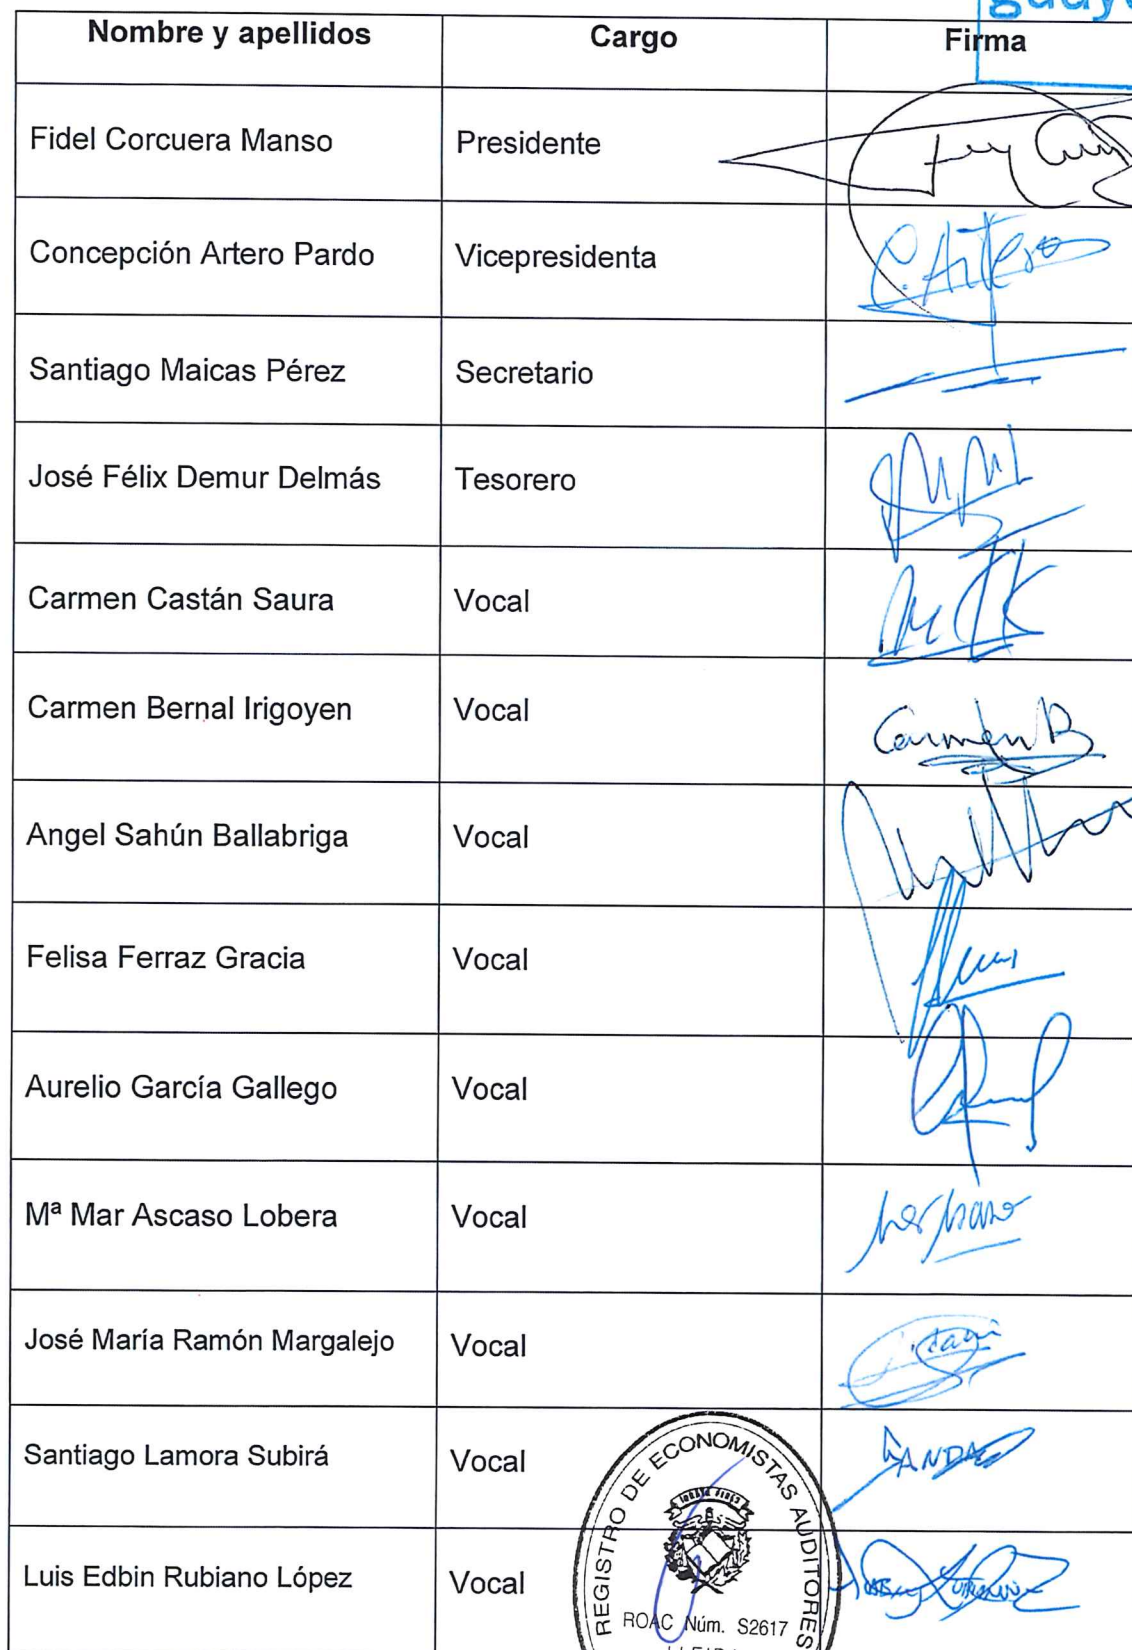 Nombre y apellidos Cargo Firma
Fidel Corcuera Manso Presidente
Concepción Artero Pardo Vicepresidenta C. Artero
Santiago Maicas Pérez Secretario
José Félix Demur Delmás Tesorero
Carmen Castán Saura Vocal
Carmen Bernal Irigoyen Vocal Carmen B
Angel Sahún Ballabriga Vocal
Felisa Ferraz Gracia Vocal
Aurelio García Gallego Vocal
Mª Mar Ascaso Lobera Vocal
José María Ramón Margalejo Vocal
Santiago Lamora Subirá Vocal
Luis Edbin Rubiano López Vocal
REGISTRO DE ECONOMISTAS AUDITORES
ROAC Núm. S2617